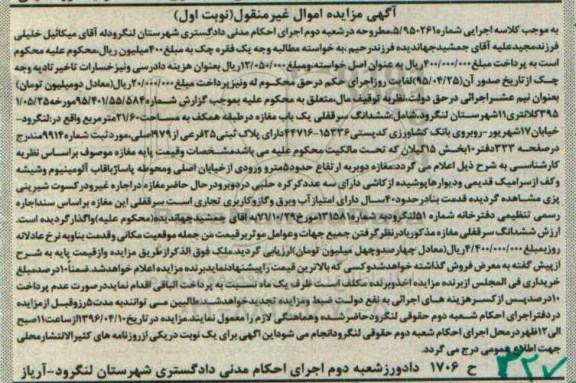 آگهی مزایده اموال غیرمنقول(نوبت اول)
به موجب کلاسه اجرایی شماره۵/۹۵۰۲۶۱مطروحه در شعبه دوم اجرای احکام مدنی دادگستری شهرستان لنگرودله آقای میکائیل خلیلی
فرزندمجیدعلیه آقای جمشیدجهاندیده فرزندرحیم،به خواسته مطالبه وجه یک فقره چک به مبلغ۴۰۰میلیون ریال،محکوم علیه محکوم
است به پرداخت مبلغ۴۰۰/۰۰۰/۰۰۰ریال به عنوان اصل خواسته،ومبلغ۱۲/۰۵۰/۰۰۰ریال بعنوان هزینه دادرسی ونیزخسارات تاخیر تادیه وجه
چک از تاریخ صدور آن(۹۵/۰۴/۲۵)لغایت روزاجرای حکم درحق محکوم له ونیزپرداخت مبلغ۲۰/۰۰۰/۰۰۰ریال(معادل دومیلیون تومان)
بعنوان نیم عشراجرائی درحق دولت،نظربه توقیف مال،متعلق به محکوم علیه بموجب گزارش شماره۹۵/۴۰۱/۵۵/۵۸۴مورخه۱/۰۵/۲۵
۳۹۵کلانتری۱۱شهرستان لنگرود،شامل:ششدانگ سرقفلی یک باب مغازه در طبقه همکف به مساحت۲۱/۶۰مترمربع واقع در:لنگرود-
خیابان۱۷شهریور-روبروی بانک کشاورزی کدپستی۱۵۳۳۶-۴۴۷۱۶دارای پلاک ثبتی۲۵فرعی از۹۷۹اصلی،موردثبت شماره۹۹۱۴مندرج
درصفحه ۳۳۳دفتر۱۰بخش ۱۵گیلان که تحت مالکیت محکوم علیه می باشدمشخصات وقیمت پایه مغازه موصوف براساس نظریه
کارشناسی به شرح ذیل اعلام می گردد:مغازه دوبربه ارتفاع حدود۵مترو ورودی ازخیابان اصلی ومحوطه پاساژباقاب آلومینیوم وشیشه
وکف ازسرامیک قدیمی ودیوارهاپوشیده ازکاشی دارای سه عددکرکره حلبی دردوبرودرحال حاضرمغازه دراجاره غیرودرکسوت شیرینی
پزی مشاهده گردیده قدمت بنادرحدود۴۰سال دارای امتیازآب وبرق وگازوکاربری تجاری است.سرقفلی این مغازه براساس سنداجاره
رسمی تنظیمی دفترخانه شماره ۵۱لنگرودبه شماره۳۱۵۸۱مورخ۷۱/۱۰/۲۹به آقای جمشیدجهاندیده(محکوم علیه)واگذارگردیده است.
ارزش ششدانگ سرقفلی مغازه مذکوربادرنظرگرفتن جمیع جهات وعوامل موثربرقیمت من جمله موقعیت مکانی وقدمت بناوبه نرخ عادلانه
روزبمبلغ۴/۴۰۰/۰۰۰/۰۰۰ریال(معادل چهارصدوچهل میلیون تومان)ارزیابی گردید.ملک فوق الذکرازطریق مزایده وازقیمت پایه به شرح
ازپیش گفته به معرض فروش گذاشته خواهدشدوکسی که بالاترین قیمت راپیشنهادنمایدبرنده مزایده اعلام خواهدشد.ضمناً۱۰درصدمبلغ
خریداری فی المجلس ازبرنده مزایده اخذوبرنده مکلف است ظرف یک ماه نسبت به پرداخت الباقی اقدام نمایددرصورت عدم پرداخت
۱۰درصدپس ازکسرهزینه های اجرائی به نفع دولت ضبط ومزایده تجدیدخواهدشد.طالبین می توانندبه مدت۵روزقبل ازمزایده
دردفتراجرای احکام شعبه دوم حقوقی لنگرودحاضرشده وهماهنگی لازم رامعمول نمایند.مزایده درتاریخ۱۳۹۶/۰۴/۱۰ازساعت۱۱صبح
الی۱۲ظهردرمحل اجرای احکام شعبه دوم حقوقی لنگرودانجام می شوداین آگهی برای یک نوبت دریکی ازروزنامه های کثیرالانتشارمحلی
جهت اطلاع عمومی درج می گردد.
ح ۱۷۰۶ دادورزشعبه دوم اجرای احکام مدنی دادگستری شهرستان لنگرود-آریاز
۳۲۷